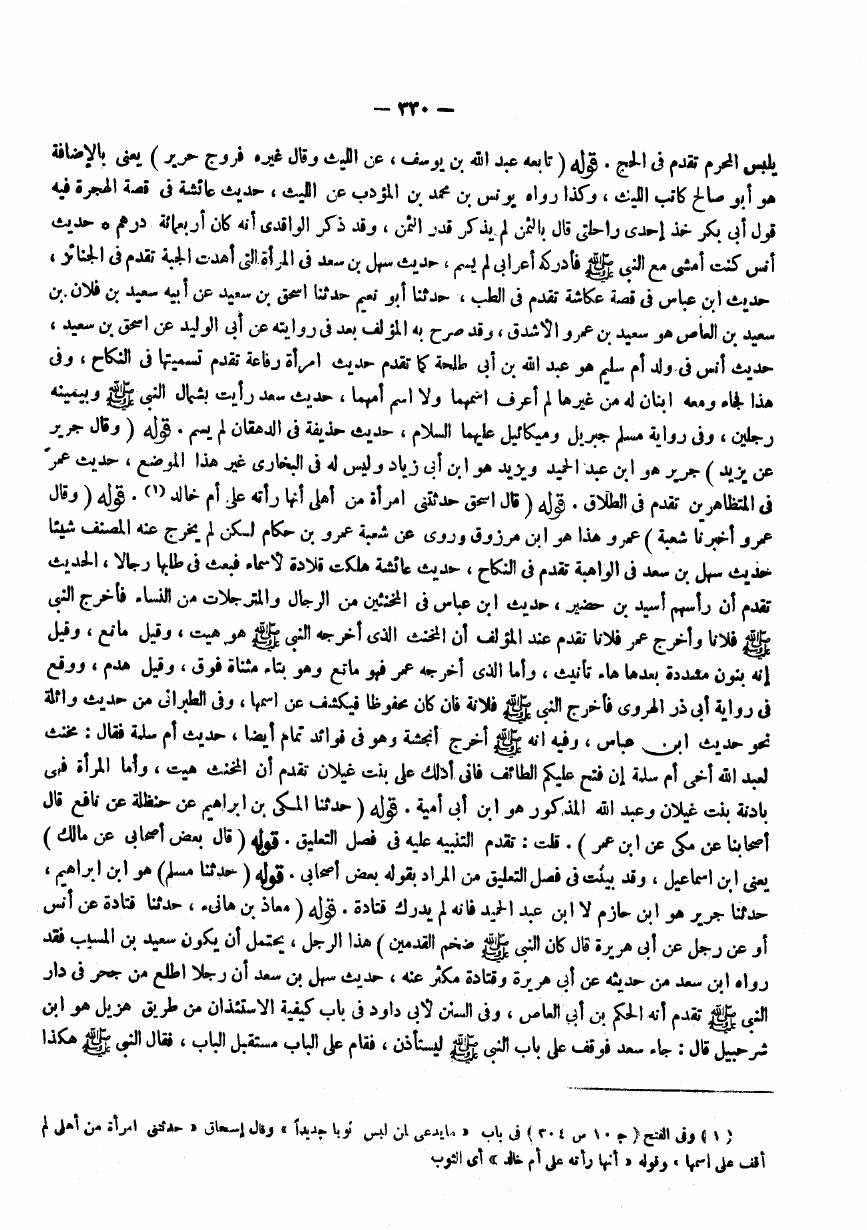 — ٣٣٠ —
يلبس المحرم تقدم فى الحج . قوله ( تابعه عبد الله بن يوسف ، عن الليث وقال غيره فروج حرير ) يعنى بالإضافة
هو أبو صالح كاتب الليث ، وكذا رواه يونس بن محمد بن المؤدب عن الليث ، حديث عائشة فى قصة الهجرة فيه
قول أبى بكر خذ إحدى راحلتى قال بالثمن لم يذكر قدر الثمن ، وقد ذكر الواقدى أنه كان أربعمائة درهم * حديث
أنس كنت أمشى مع النبى ﷺ فأدركه أعرابى لم يسم ، حديث سهل بن سعد فى المرأة التى أهدت الجبة تقدم فى الجنائز ،
حديث ابن عباس فى قصة عكاشة تقدم فى الطب ، حدثنا أبو نعيم حدثنا اسحق بن سعيد عن أبيه سعيد بن فلان بن
سعيد بن العاص هو سعيد بن عمرو الأشدق ، وقد صرح به المؤلف بعد فى روايته عن أبى الوليد عن اسحق بن سعيد ،
حديث أنس فى ولد أم سليم هو عبد الله بن أبى طلحة كما تقدم حديث امرأة رفاعة تقدم تسميتها فى النكاح ، وفى
هذا لجاء ومعه ابنان له من غيرها لم أعرف اسمهما ولا اسم أمهما ، حديث سعد رأيت بشمال النبى ﷺ وبيمينه
رجلين ، وفى رواية مسلم جبريل وميكائيل عليهما السلام ، حديث حذيفة فى الدهقان لم يسم . قوله ( وقال جرير
عن يزيد ) جرير هو ابن عبد الحميد ويزيد هو ابن أبى زياد وليس له فى البخارى غير هذا الموضع ، حديث عمر
فى المتظاهرين تقدم فى الطلاق . قوله ( قال اسحق حدثتنى امرأة من أهلى أنها رأته على أم خالد (١) . قوله ( وقال
عمرو أخبرنا شعبة ) عمرو هذا هو ابن مرزوق وروى عن شعبة عمرو بن حكام لكن لم يخرج عنه المصنف شيئا
حديث سهل بن سعد فى الواهبة تقدم فى النكاح ، حديث عائشة هلكت قلادة لأسماء فبعث فى طلبها رجالا ، الحديث
تقدم أن رأسهم أسيد بن حضير ، حديث ابن عباس فى المخنثين من الرجال والمترجلات من النساء فأخرج النبى
ﷺ فلانا وأخرج عمر فلانا تقدم عند المؤلف أن المخنث الذى أخرجه النبى ﷺ هو هيت ، وقيل ماتع ، وقيل
إنه بنون مشددة بعدها هاء تأنيث ، وأما الذى أخرجه عمر فهو ماتع وهو بتاء مثناة فوق ، وقيل هدم ، ووقع
فى رواية أبى ذر الهروى فأخرج النبى ﷺ فلانة فان كان محفوظا فيكشف عن اسمها ، وفى الطبرانى من حديث واثلة
نحو حديث ابن عباس ، وفيه انه ﷺ أخرج أنجشة وهو فى فوائد تمام أيضا ، حديث أم سلمة فقال : مخنث
لعبد الله أخى أم سلمة إن فتح عليكم الطائف فانى أدلك على بنت غيلان تقدم أن المخنث هيت ، وأما المرأة فهى
بادنة بنت غيلان وعبد الله المذكور هو ابن أبى أمية . قوله ( حدثنا المكى بن ابراهيم عن حنظلة عن نافع قال
أصحابنا عن مكى عن ابن عمر ) . قلت : تقدم التنبيه عليه فى فصل التعليق . قوله ( قال بعض أصحابى عن مالك )
يعنى ابن اسماعيل ، وقد بينت فى فصل التعليق من المراد بقوله بعض أصحابى . قوله ( حدثنا مسلم ) هو ابن ابراهيم ،
حدثنا جرير هو ابن حازم لا ابن عبد الحميد فانه لم يدرك قتادة . قوله ( معاذ بن هانىء ، حدثنا قتادة عن أنس
أو عن رجل عن أبى هريرة قال كان النبى ﷺ ضخم القدمين ) هذا الرجل ، يحتمل أن يكون سعيد بن المسيب فقد
رواه ابن سعد من حديثه عن أبى هريرة وقتادة مكثر عنه ، حديث سهل بن سعد أن رجلا اطلع من جحر فى دار
النبى ﷺ تقدم أنه الحكم بن أبى العاص ، وفى السنن لأبى داود فى باب كيفية الاستئذان من طريق هزيل هو ابن
شرحبيل قال : جاء سعد فوقف على باب النبى ﷺ ليستأذن ، فقام على الباب مستقبل الباب ، فقال النبى ﷺ هكذا
(١) وفى الفتح ( ج ١٠ ص ٣٠٤ ) فى باب « مايدعى لمن لبس ثوبا جديداً » وقال إسحاق « حدثتنى امرأة من أهلى لم
أقف على اسمها ، وقوله « أنها رأته على أم خالد » أى الثوب